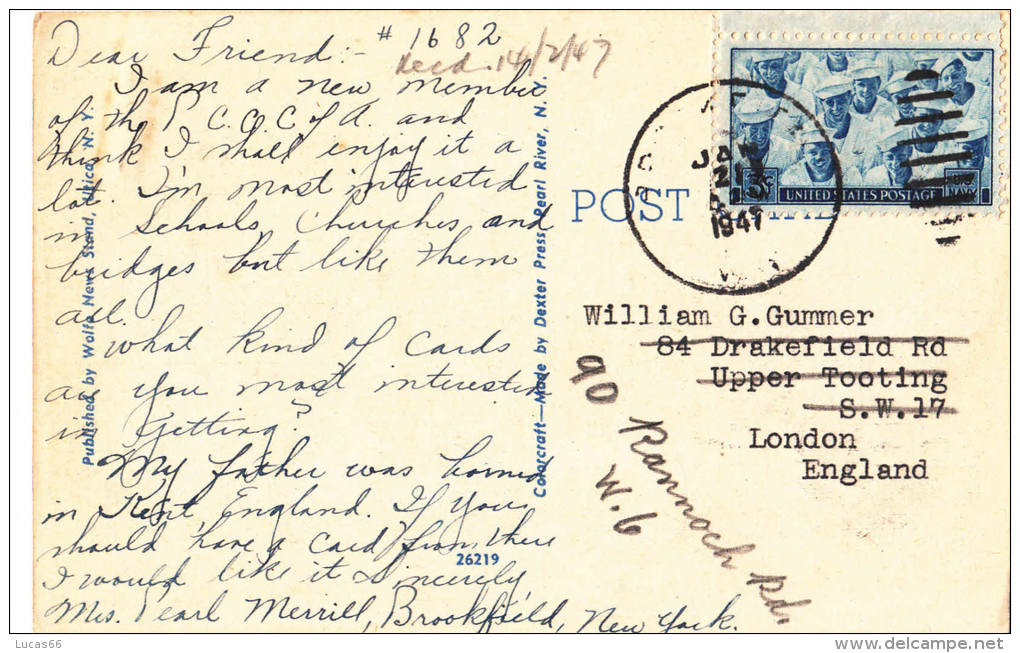 Dear Friend:- #1682
recd. 14/2/47
I am a new member
of the P C.C.C of A. and
think I shall enjoy it a
lot. I'm most interested
in Schools, Churches and
bridges but like them
all.
What kind of Cards
are you most interested
in getting?
My father was borned
in Kent, England. If you
should have a Card from there
I would like it Sincerely
Mrs. Pearl Merrill, Brookfield, New York.
Published by Wolfe News Stand, Utica, N. Y.
Colorcraft—Made by Dexter Press, Pearl River, N. Y.
26219
POST
JAN
21
1947
UNITED STATES POSTAGE
3¢
NAVY
William G.Gummer
84 Drakefield Rd
Upper Tooting
S.W.17
London
England
90 Rannoch Rd.
W.6
Lucas66
delcampe.net